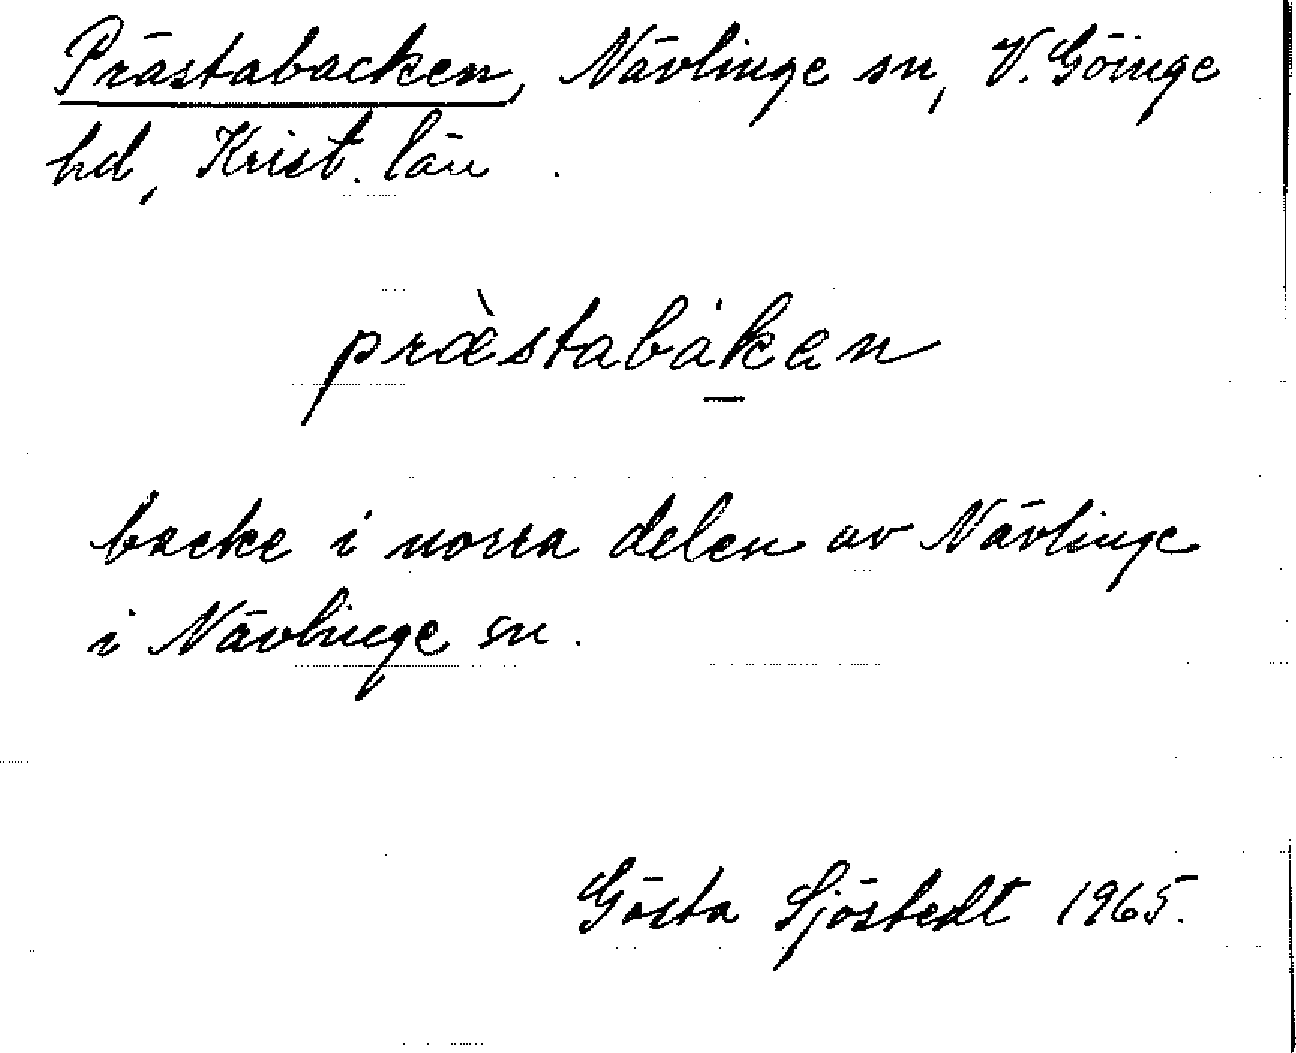 Prästabacken, Nävlinge sn, V. Göinge
hd, Krist. län.
præ̀stabáken
backe i norra delen av Nävlinge
i Nävlinge sn.
Gösta Sjöstedt 1965.